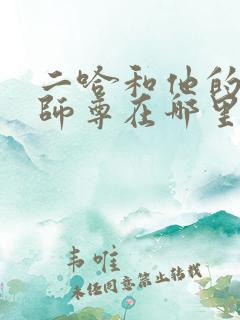 二哈和他的
師尊在哪里
韦唯
未经同意禁止转载